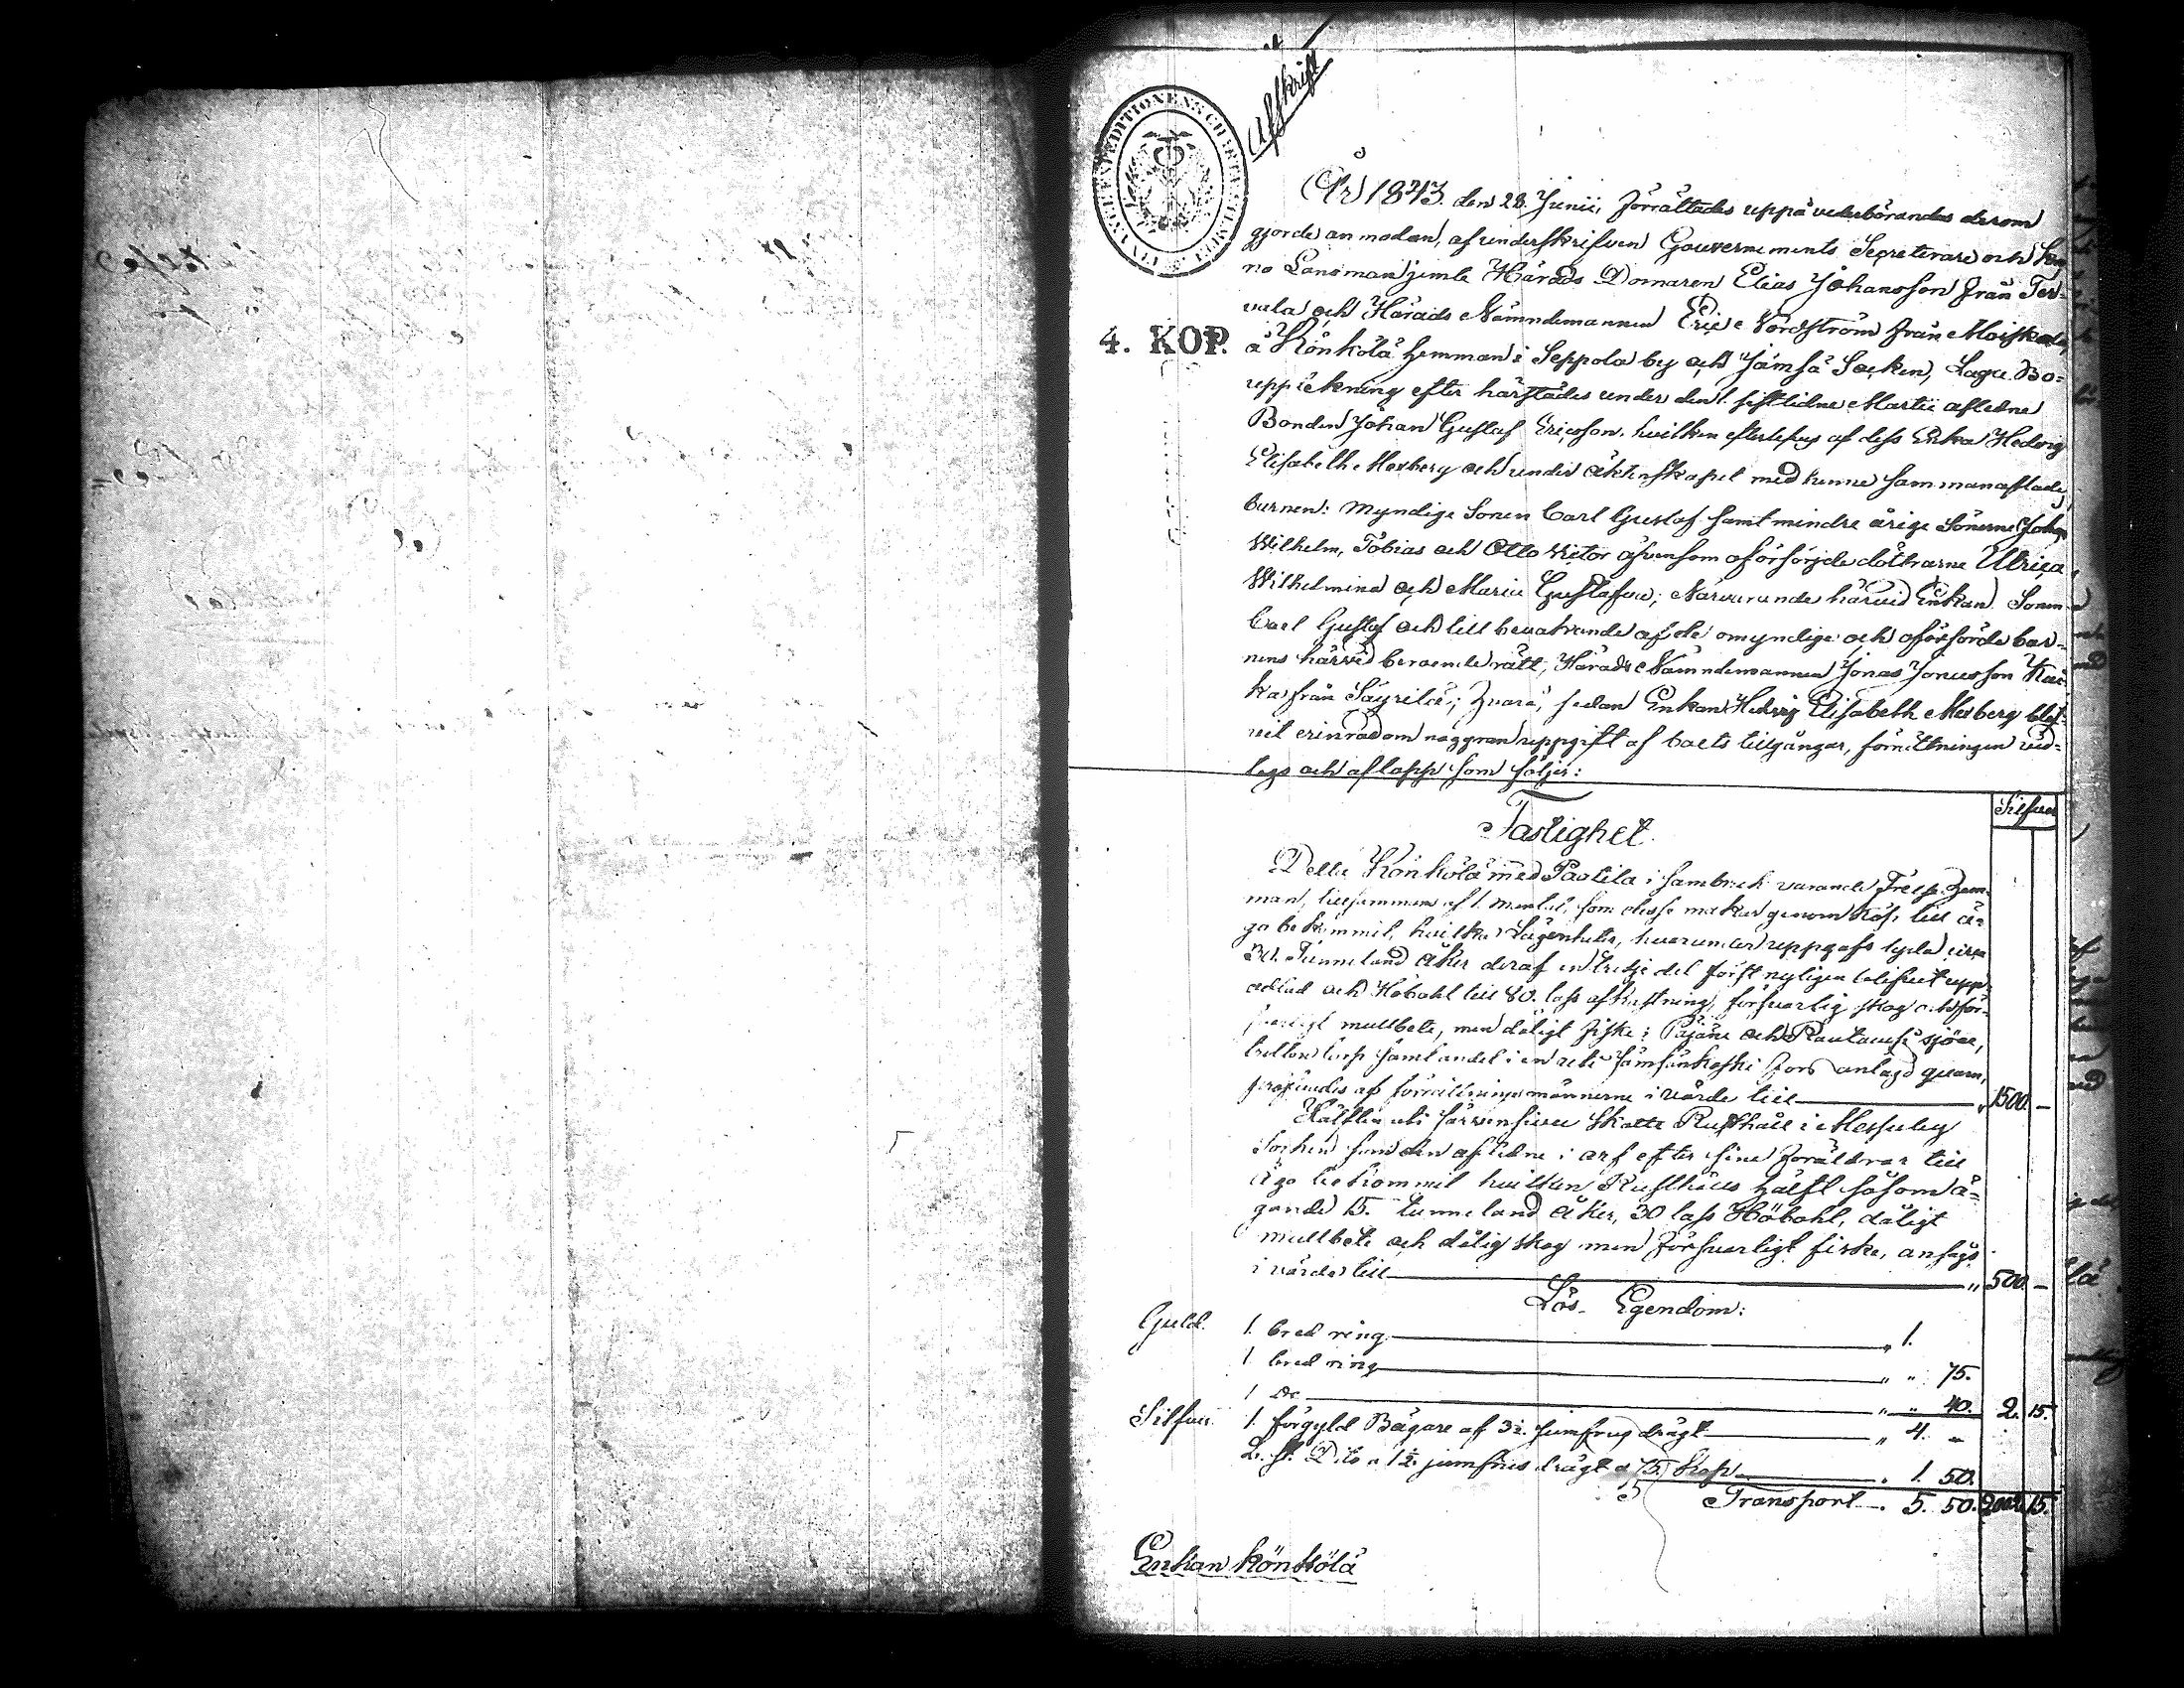 Afskrift
4. KOP.
År 1843. den 28. Junii, förrättades uppå vederbörandes derom
gjorde anmodan, af underskrifven Gouvernements Secreterare och Kro
no Länsman jemte Härads Domaren Elias Johansson från Ter-
vala och Härads Nämndemannen Eric Nordström från Moiskala,
å Könkölä hemman i Seppola by och Jämsä Socken, Laga Bo-
uppteckning efter härstädes under den 1. sistlidne Martii aflidne
Bonden Johan Gustaf Ericsson, hvilken efterlefves af dess Enka Hedvig
Elisabeth Mexberg och under äktenskapet med henne sammanaflade
barnen: Myndige Sonen Carl Gustaf samt minderårige Sönerne Johan
Wilhelm, Tobias och Otto Victor äfvensom oförsörjda döttrarne Ulrica
Wilhelmina och Maria Gustafva; Närvarande härvid Enkan, Sonen
Carl Gustaf och till bevakande af de omyndige och oförsörjde bar-
nens härvid beroende rätt, Härads Nämndemannen Jonas Jonasson
ka från Säyrilä; hvarå, sedan Enkan Hedvig Elisabeth Mexberg blif-
vit erinrad om noggrann uppgift af boets tillgångar, förrättningen vid-
togs och aflopp som följer:
Silfver
Fastighet.
Detta Könkölä med Paatila i sambruk varande hem-
man, tillsammans af 1. mantal, som desse makar genom köp till ä-
go bekommit, hvilka Lägenheter, hvarunder uppgafs lyda circa
30. Tunneland åker deraf en tredje del först nyligen blifvit upp-
odlad och Höbohl till 80. lass afkastning, försvarlig skog och för-
svarligt mulbete, men dåligt fiske i Päjäne och Rautavesi sjöar,
samt andel i en uti Jämsänkoski fors anlagd qvarn,
af förrättningsmännerne i värde till 1500. —
Hälften uti Särvensivu Skatte Rusthåll i Messuby
Socken som den aflidne i arf efter sine föräldrar till
ägo bekommit hvilken Rusthålls hälft såsom ä-
gande 15. tunneland åker, 30 lass Höbohl, dåligt
mulbete och dålig skog men försvarligt fiske, ansågs
i värde till „ 500. —
Lös- Egendom:
Guld. 1. bred ring „ 1.
1 bred ring „ „ 75.
1 Do „ „ 40. 2. 15.
Silfver. 1. förgyld Bägare af 3½. jumfrus drägt „ 4. –
2. st. Dito a 1½. jumfrus drägt a 75. Kop „ 1. 50.
Transport 5. 50. 2002. 15.
Enkan Könkölä